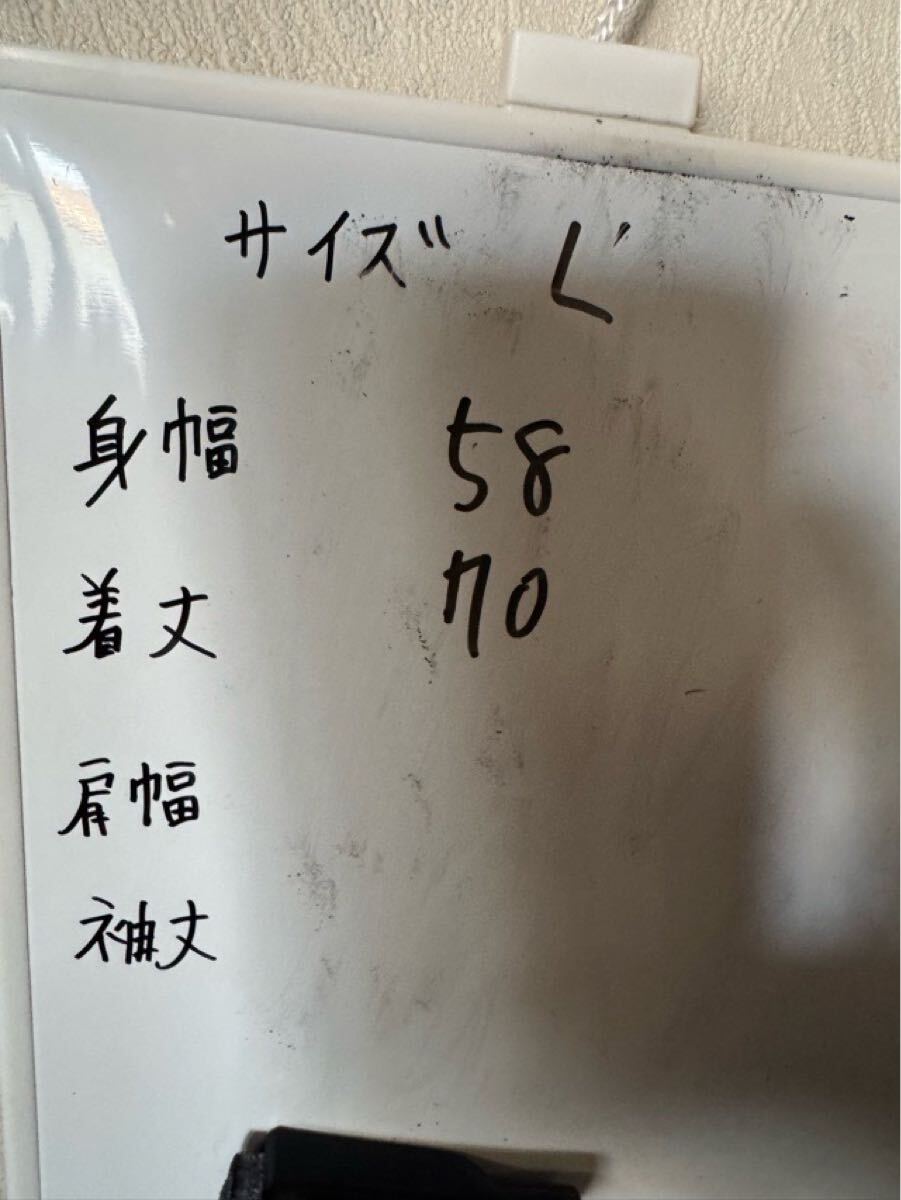 サイズ L
身幅 58
着丈 70
肩幅
袖丈